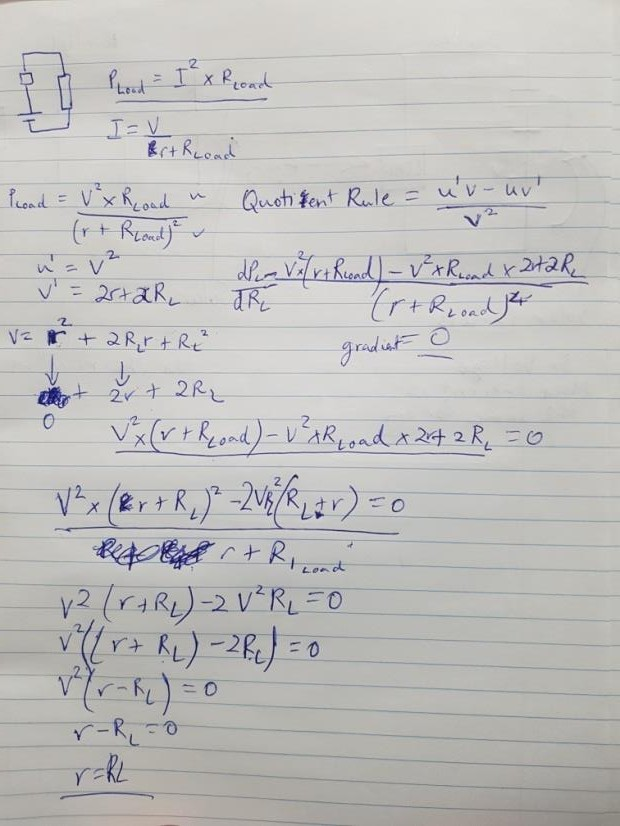 P_Load = I² × R_Load
I = V / (r + R_Load)
P_Load = V² × R_Load / (r + R_Load)²
Quotient Rule = u'v − uv' / v²
u' = V²
v' = 2r + 2R_L
dP_L / dR_L = V² × (r + R_Load) − V² × R_Load × 2r + 2R_L / (r + R_Load)⁴
V = r² + 2R_L r + R_L²
gradient = 0
↓ ↓
+ 2r + 2R_L
0
V² × (r + R_Load) − V² × R_Load × 2r + 2R_L = 0
V² × (r + R_L)² − 2VR_L²(R_L + r) = 0
r + R_Load
V² (r + R_L) − 2V² R_L = 0
V² ((r + R_L) − 2R_L) = 0
V² (r − R_L) = 0
r − R_L = 0
r = RL